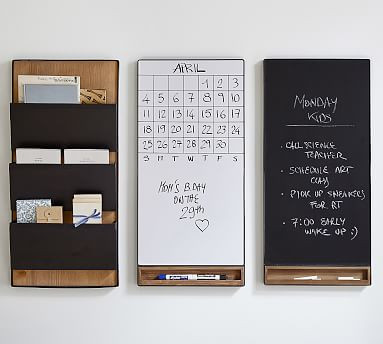 APRIL
1 2 3
4 5 6 7 8 9 10
11 12 13 14 15 16 17
18 19 20 21 22 23 24
25 26 27 28 29 30
S M T W T F S
MOM'S B.DAY
ON THE
29th
MONDAY
KIDS
• CALL SCIENCE
TEACHER
• SCHEDULE ART
CLASS
• PICK UP SNEAKERS
FOR RT
• 7:00 EARLY
WAKE UP :)